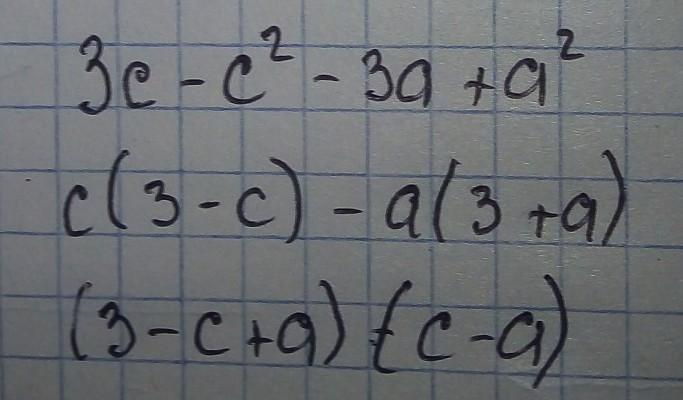 3c - c² - 3a + a²
c(3 - c) - a(3 + a)
(3 - c + a) (c - a)